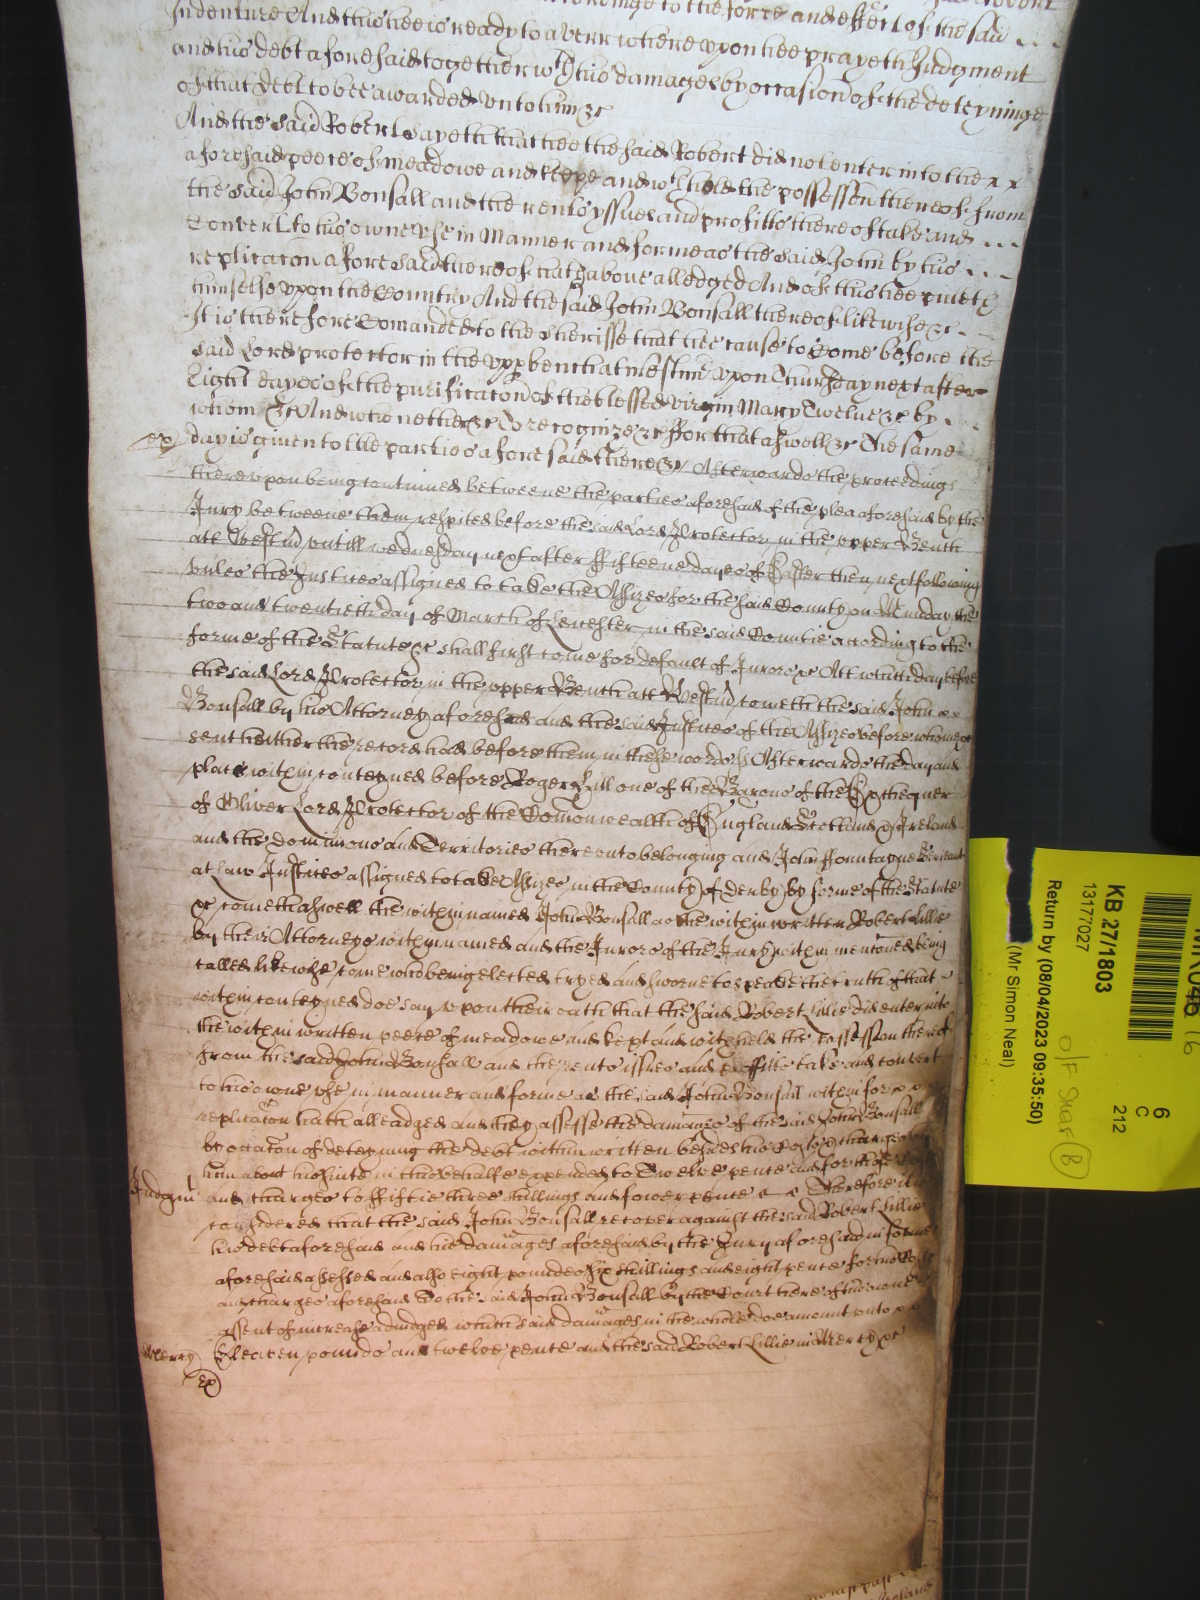 accordinge to the force and effect of the said
Indenture And this hee is ready to averr where upon hee prayeth Judgment
and his debt aforesaid together wth his damages by occasion of the deteyninge
of that debt to bee awarded unto him &c
And the said Robert sayeth that hee the said Robert did not enter into the x x
aforesaid peece of meadowe and keepe and wthhold the possession thereof from
the said John Bonsall and the rents yssues and profitts thereof take and ...
Convert to his owne use in Manner and forme as the said John by his ...
replicacon aforesaid thereof hath above alledged And of this hee putteth
himselfe upon the Country And the said John Bonsall thereof likewise &c
It is therefore Comanded to the sheriffe that hee cause to Come before the
said Lord protector in the upp bench at Westmr upon Thursday next after
Eight dayes of the purificacon of the blessed virgin Mary Twelve &c by ...
whom &c And who nether &c To recognize &c ffor that aswell &c The same
ex
day is given to the parties aforesaid there &c Afterwards the proceedings
thereupon being continued betweene the parties aforesaid of the plea aforesaid by the
Jury betweene them respited before the said Lord Protector in the upper Bench
att Westmr untill wednesday next after ffifteene dayes of Easter then next following
unles the Justices assigned to take the Assizes for the said County on Munday the
two and twentieth day of March at Leicester in the said Countie according to the
forme of the Statute &c shall first come for default of Jurors &c Att which day before
the said Lord Protector in the upper Bench att Westmr cometh the said John x x
Bonsall by his Attorney aforesaid and the said Justices of the Assizes before whom &c
sent hether there record had before them in these words Afterwards the day and
place within conteyned before Roger Hill one of the Barons of the Exchequer
of Oliver Lord Protector of the Comonwealth of England Scotland & Ireland
and the dominions and Territories thereunto belonging and John ffountayne Serieant
at Law Justices assigned to take Assizes in the County of derby by forme of the Statute
&c cometh aswell the within named John Bonsall as the within written Robert Lillie
by their Attorneys within named and the Jurors of the Jury within mentoned being
called likewise come who being elected tryed and sworne to speake the truth of that
within conteyned doe say upon their oath that the said Robert Lillie did enter into
the within written peece of meadowe and kept and withheld the Possession thereof
from the said John Bonsall and the rents issues and proffitts take and convert
to his owne use in manner and forme as the said John Bonsall within for x x
replicacon hath alleadged and they assesse the damages of the said John Bonsall
by occacon of deteyning the debt within written besides his Costs & charges by
him about his suite in this behalfe expended to Twelve pence and for those Costs
Judgmt
and charges to ffiftie three shillings and fower pence Therefore it is
considered that the said John Bonsall recover against the said Robert Lillie
his debt aforesaid and his damages aforesaid by the Jury aforesaid in forme
aforesaid assessed and also eight pounds six shillings and eight pence for his Costs
and charges aforesaid to the said John Bonsall by the Court here of his owne
assent of increase adiudged which said damages in the whole doe amount unto x x
Mercy
Eleaven pounds and twelve pence and the said Robert Lillie in Mercy &c
Ex
KB 27/1803
13177027
Return by (08/04/2023 09:35:50)
(Mr Simon Neal)
6
C
212
O/F Shelf (B)